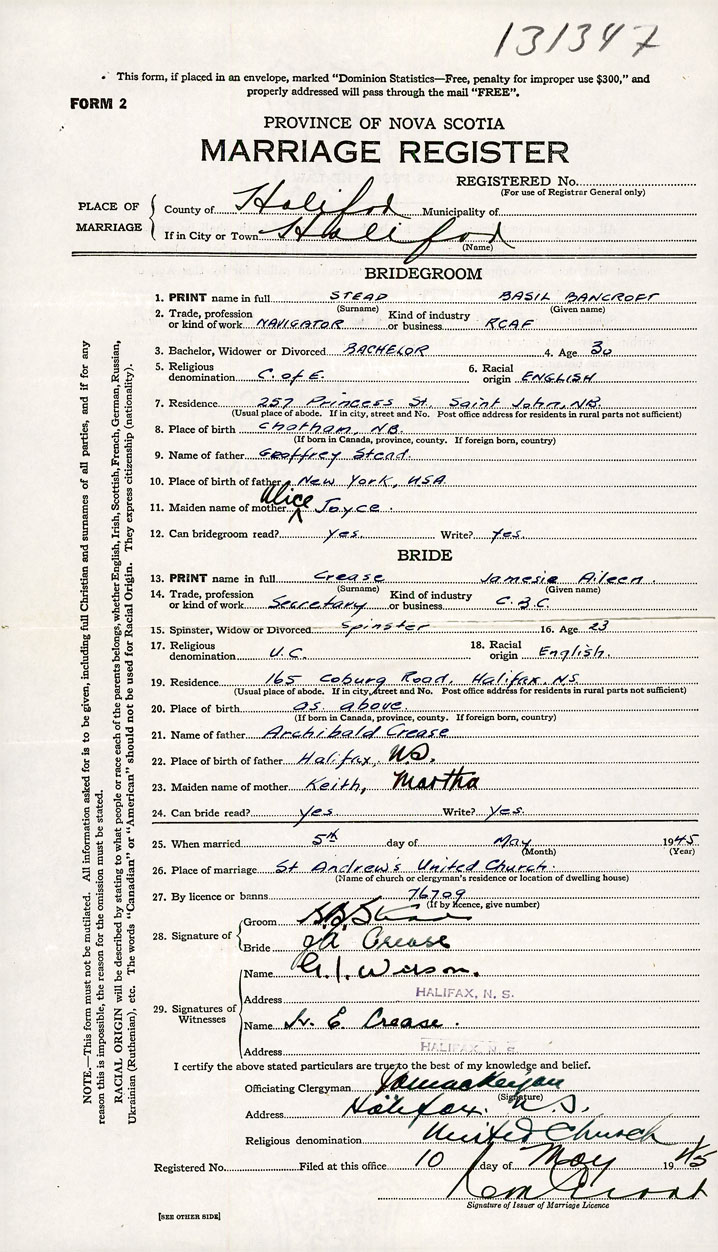 131347
• This form, if placed in an envelope, marked “Dominion Statistics—Free, penalty for improper use $300,” and
properly addressed will pass through the mail “FREE”.
FORM 2
PROVINCE OF NOVA SCOTIA
MARRIAGE REGISTER
REGISTERED No.
(For use of Registrar General only)
PLACE OF MARRIAGE
County of Halifax Municipality of
If in City or Town Halifax
(Name)
BRIDEGROOM
1. PRINT name in full STEAD BASIL BANCROFT
(Surname) (Given name)
2. Trade, profession or kind of work NAVIGATOR Kind of industry or business RCAF
3. Bachelor, Widower or Divorced BACHELOR 4. Age 30
5. Religious denomination C. of E. 6. Racial origin ENGLISH
7. Residence 257 Princess St. Saint John, N.B.
(Usual place of abode. If in city, street and No. Post office address for residents in rural parts not sufficient)
8. Place of birth Chatham, N.B.
(If born in Canada, province, county. If foreign born, country)
9. Name of father Geoffrey Stead.
10. Place of birth of father New York, USA
11. Maiden name of mother Alice Joyce.
12. Can bridegroom read? Yes. Write? Yes.
BRIDE
13. PRINT name in full Crease Jamesie Aileen.
(Surname) (Given name)
14. Trade, profession or kind of work Secretary Kind of industry or business C.B.C.
15. Spinster, Widow or Divorced Spinster 16. Age 23
17. Religious denomination U.C. 18. Racial origin English.
19. Residence 165 Coburg Road, Halifax. N.S.
(Usual place of abode. If in city, street and No. Post office address for residents in rural parts not sufficient)
20. Place of birth as above.
(If born in Canada, province, county. If foreign born, country)
21. Name of father Archibald Crease
22. Place of birth of father Halifax, N.S.
23. Maiden name of mother Keith, Martha
24. Can bride read? yes Write? yes.
25. When married 5th day of May 1945
(Month) (Year)
26. Place of marriage St Andrew's United Church.
(Name of church or clergyman's residence or location of dwelling house)
27. By licence or banns 76709
(If by licence, give number)
28. Signature of
Groom B.B. Stead
Bride J.A. Crease
29. Signatures of Witnesses
Name
Address HALIFAX, N. S.
Name E Crease.
Address HALIFAX, N. S.
I certify the above stated particulars are true to the best of my knowledge and belief.
Officiating Clergyman
(Signature)
Address Halifax. N.S.
Religious denomination United Church
Registered No. Filed at this office 10 day of May 1945
Signature of Issuer of Marriage Licence
[SEE OTHER SIDE]
NOTE.—This form must not be mutilated. All information asked for is to be given, including full Christian and surnames of all parties, and if for any
reason this is impossible, the reason for the omission must be stated.
RACIAL ORIGIN will be described by stating to what people or race each of the parents belongs, whether English, Irish, Scottish, French, German, Russian,
Ukrainian (Ruthenian), etc. The words “Canadian” or “American” should not be used for Racial Origin. They express citizenship (nationality).